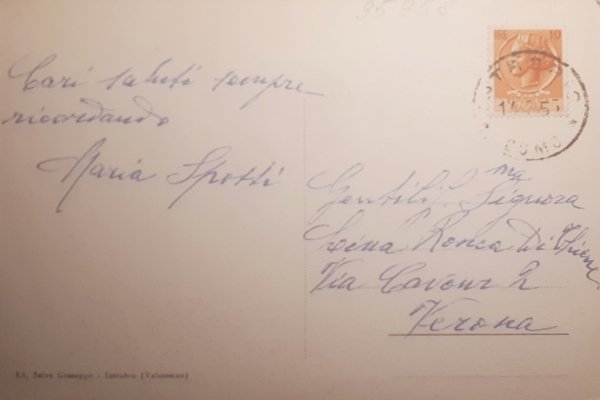 95958
10
COMO
Cari saluti sempre
ricordando
Maria Spotti
Gentili.ma Signora
Lina Ronca Di Thiene
Via Cavour 2
Verona
Ed. Salva Giuseppe - Introbio (Valsassina)